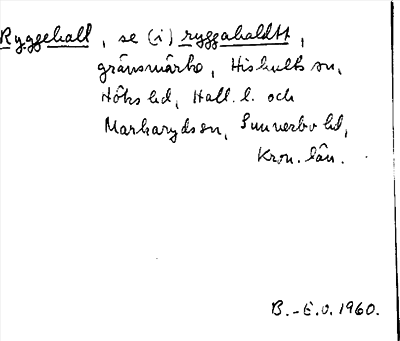 Ryggehall, se (i) ryggahaldtt,
gränsmärke, Hishults sn,
Höks hd, Hall. l. och
Markaryds sn, Sunnerbo hd,
Kron. län.
B.-E.O. 1960.